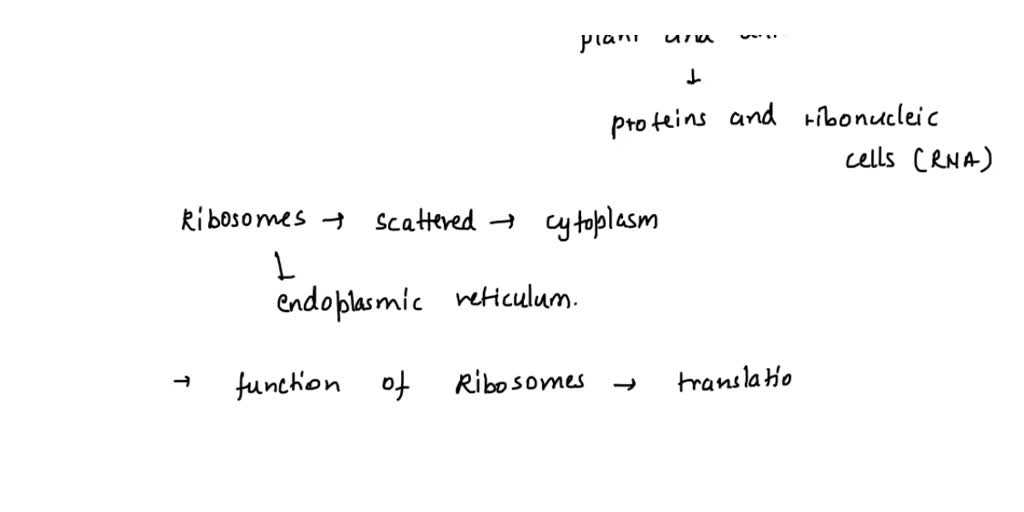 plant and
↓
proteins and ribonucleic
cells (RNA)
Ribosomes → scattered → cytoplasm
endoplasmic reticulum.
→ function of Ribosomes → translatio